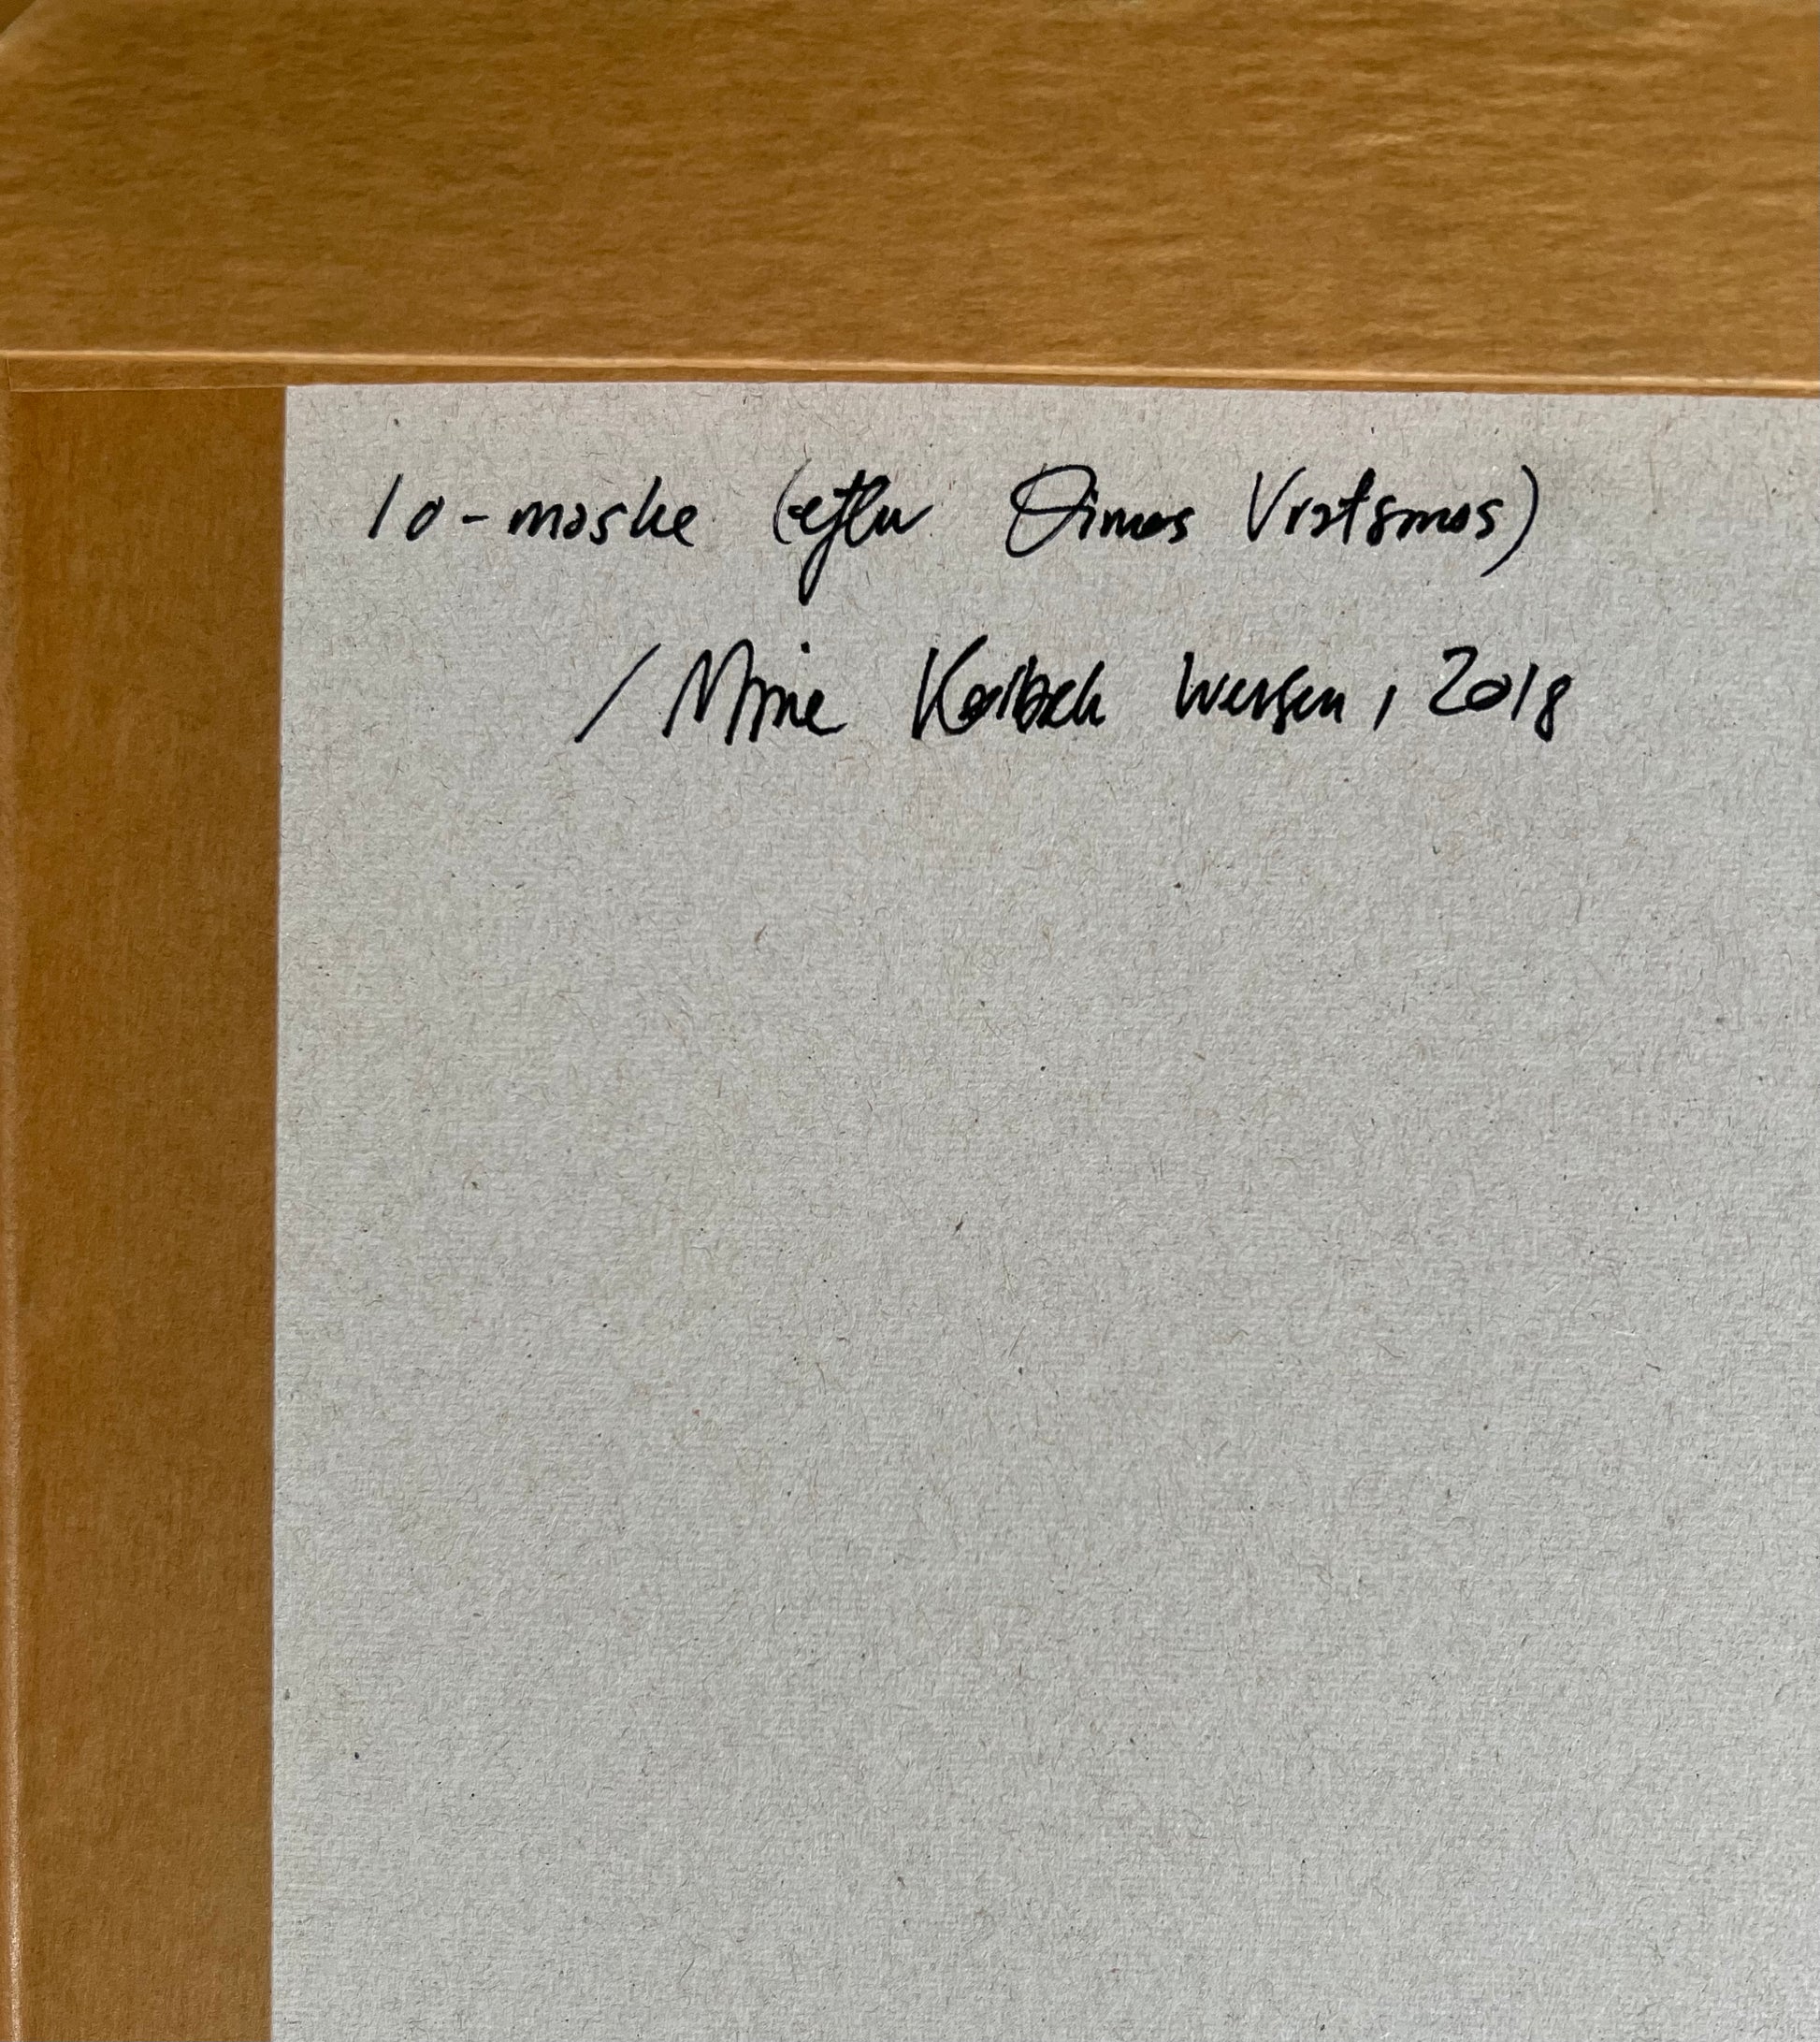 Io-maske (efter Dimos Vratsmos)
/ Marie Kølbæk Iversen, 2018